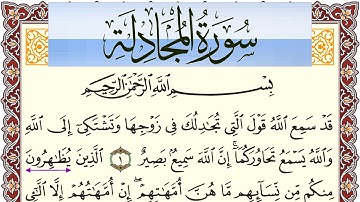 سُورَةُ المُجَادلَةِ
بِسْمِ اللَّهِ الرَّحْمَٰنِ الرَّحِيمِ
قَدْ سَمِعَ اللَّهُ قَوْلَ الَّتِي تُجَٰدِلُكَ فِي زَوْجِهَا وَتَشْتَكِي إِلَى اللَّهِ
وَاللَّهُ يَسْمَعُ تَحَاوُرَكُمَا إِنَّ اللَّهَ سَمِيعٌ بَصِيرٌ ١ الَّذِينَ يُظَٰهِرُونَ
مِنكُم مِّن نِّسَآئِهِم مَّا هُنَّ أُمَّهَٰتِهِمْ إِنْ أُمَّهَٰتُهُمْ إِلَّا الَّٰٓئِي